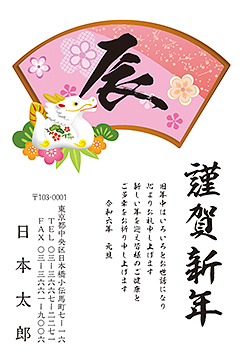 辰
謹賀新年
旧年中はいろいろとお世話になり
心よりお礼申し上げます
新しい年を迎え皆様のご健康と
ご多幸をお祈り申し上げます
令和六年　元旦
〒103-0001
東京都中央区日本橋小伝馬町七ー一六
ＴＥＬ ０三ー三六六七ー二二七一
ＦＡＸ ０三ー三六六一ー九００六
日本太郎